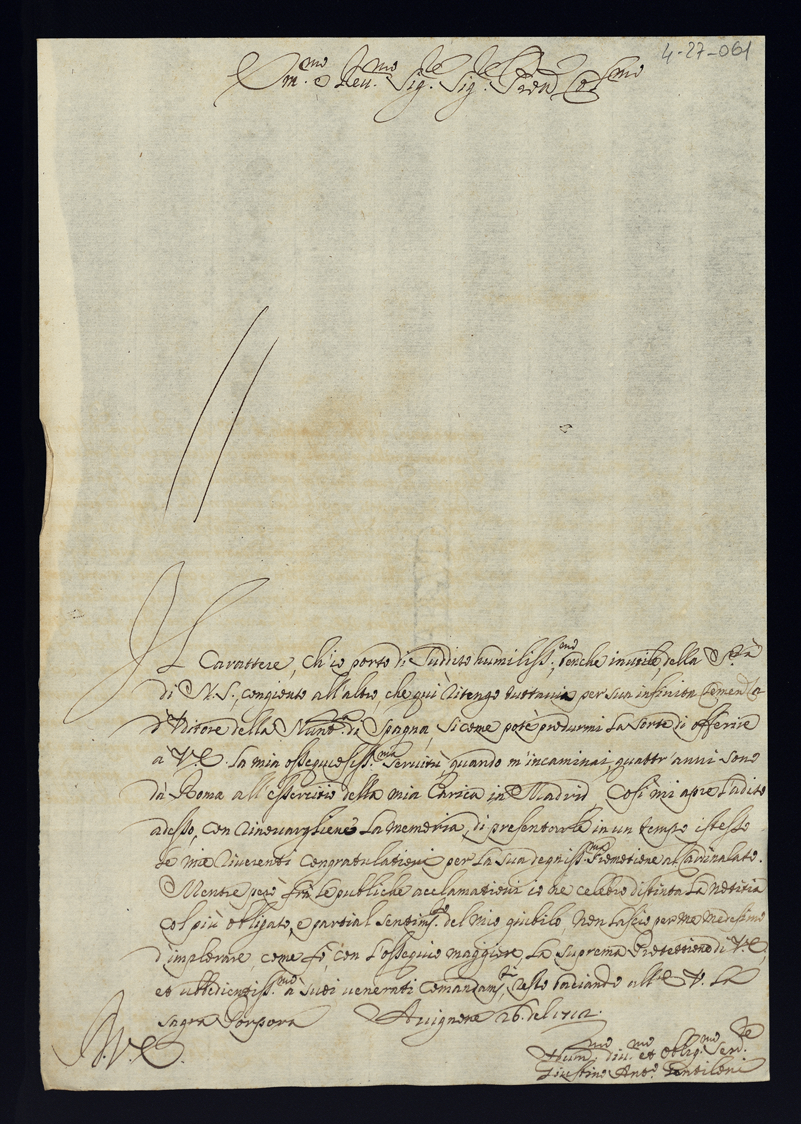 4-27-061
Em.mo e Reu.mo Sig.re Sig.re Pron Col.mo
Il Carattere, ch'io porto di Suddito humiliss.mo, benche inutile, della S.tà
di N. S., congionto all'altro, che quì ritengo tuttavia per sua infinita Clemenza
d'Vditore della Nunt.ra di Spagna, si come potè produrmi la sorte di offerire
à V. E. la mia ossequiosiss.ma Seruitù, quando m'incaminai quattr'anni sono
dà Roma all'essercitio della mia Carica in Madrid Così mi apre l'adito
adesso, con rinouargliene la memoria, di presentarle in un tempo istesso
le mie riuerenti congratulationi per la Sua degniss.ma Promotione al Cardinalato.
Mentre però frà le publiche acclamationi io ne celebro distinta la notitia
col più obligato, e partial sentim.to del mio giubilo non lascio per me medesimo
d'implorare, come fò, con l'ossequio maggiore la suprema Protettione di V. E.,
et vbbidientiss.mo à suoi venerati comandam.ti, resto baciando all'E. V. la
sagra Porpora Auignone 26. del 1712.
S. V. E.
Hum.mo diu.mo et oblig.mo Ser.re
Giustino Ant.o